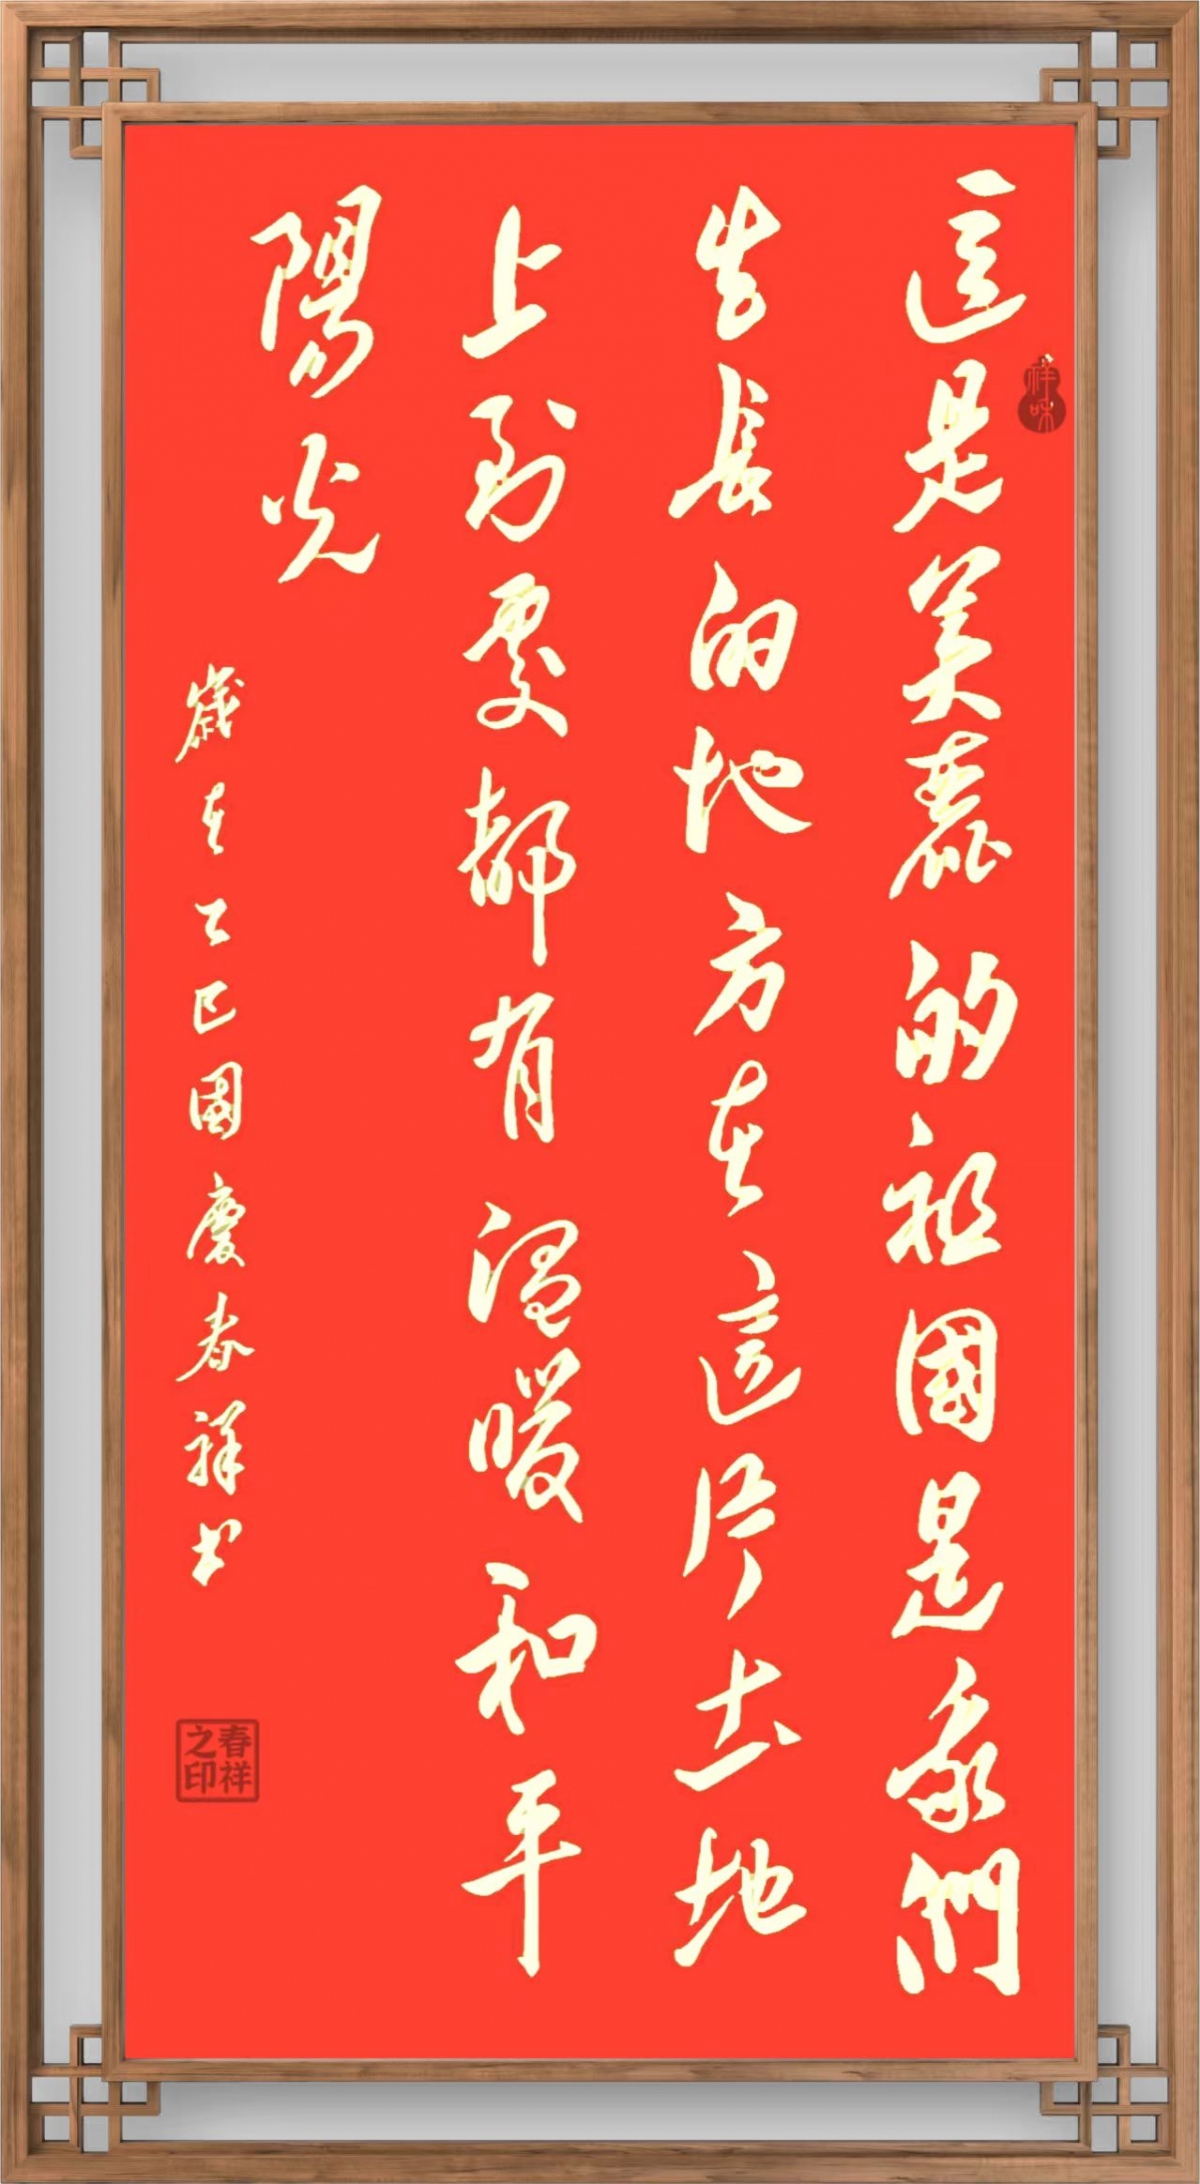 這是美麗的祖國是我們
生長的地方在這片土地
上到處都有温暖和平
陽光
歲在乙巳國慶春祥书
祥咊
春祥之印